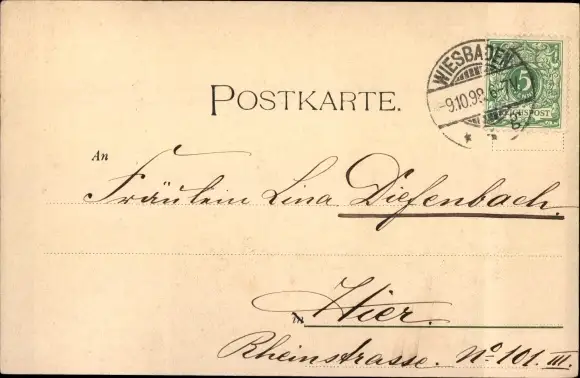 WIESBADEN
-9.10.99.6-7N
5
REICHSPOST
POSTKARTE.
An
Fräulein Lina Diefenbach.
in Hier.
Rheinstrasse. No 101 III.